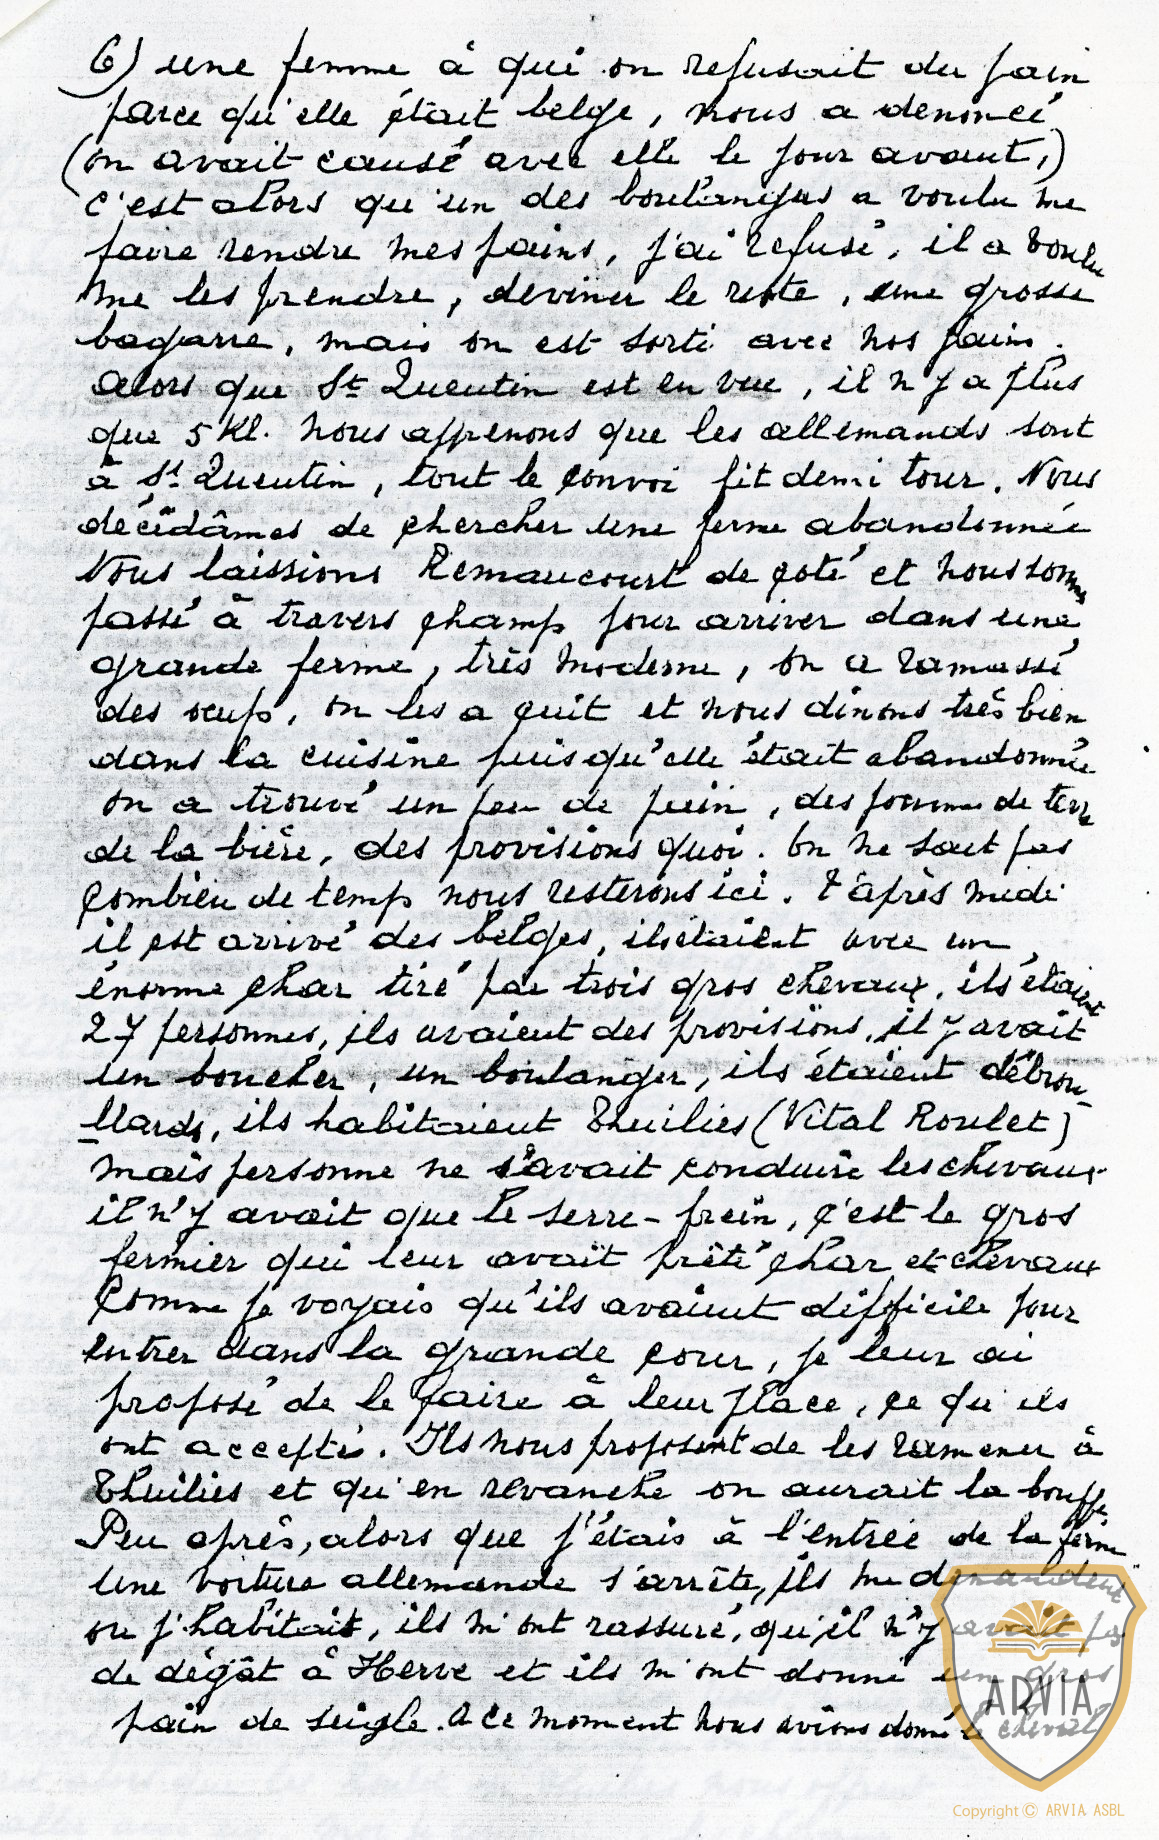 6) une femme à qui on refusait du pain
parce qu'elle était belge, nous a denoncé
(on avait causé avec elle le jour avant,)
c'est alors qu'un des boulangers a voulu me
faire rendre mes pains, j'ai refusé, il a voulu
me les prendre, deviner le reste, une grosse
bagarre, mais on est sorti avec nos pains.
alors que St Quentin est en vue, il n'y a plus
que 5 Kl. nous apprenons que les allemands sont
à St. Quentin, tout le convoi fit demi tour. Nous
décidâmes de chercher une ferme abandonnée
Nous laissions Remaucourt de coté et nous somms
passé à travers champs pour arriver dans une
grande ferme, très moderne, on a ramassé
des oeufs, on les a cuit et nous dinons très bien
dans la cuisine puisqu'elle était abandonnée
on a trouvé un peu de pain, des pommes de terre
de la bière, des provisions quoi. On ne sait pas
combien de temps nous resterons ici. L'après midi
il est arrivé des belges, ils étaient avec un
énorme char tiré par trois gros chevaux, ils étaient
27 personnes, ils avaient des provisions, il y avait
un boucher, un boulanger, ils étaient débrou-
llards, ils habitaient Thuilies (Vital Roulet)
mais personne ne savait conduire les chevaux
il n'y avait que le serre-frein, c'est le gros
fermier qui leur avait prêté char et chevaux
Comme je voyais qu'ils avaient difficile pour
entrer dans la grande cour, je leur ai
proposé de le faire à leur place, ce qu'ils
ont accepté. Ils nous proposent de les ramener à
Thuilies et qu'en revanche on aurait la bouffe
Peu après, alors que j'étais à l'entrée de la ferme
une voiture allemande s'arrête, ils me demandent
ou j'habitais, ils m'ont rassuré, qu'il n'y avait pas
de dégât à Herve et ils m'ont donné un gros
pain de seigle. A ce moment nous avions donné le cheval
ARVIA
Copyright © ARVIA ASBL